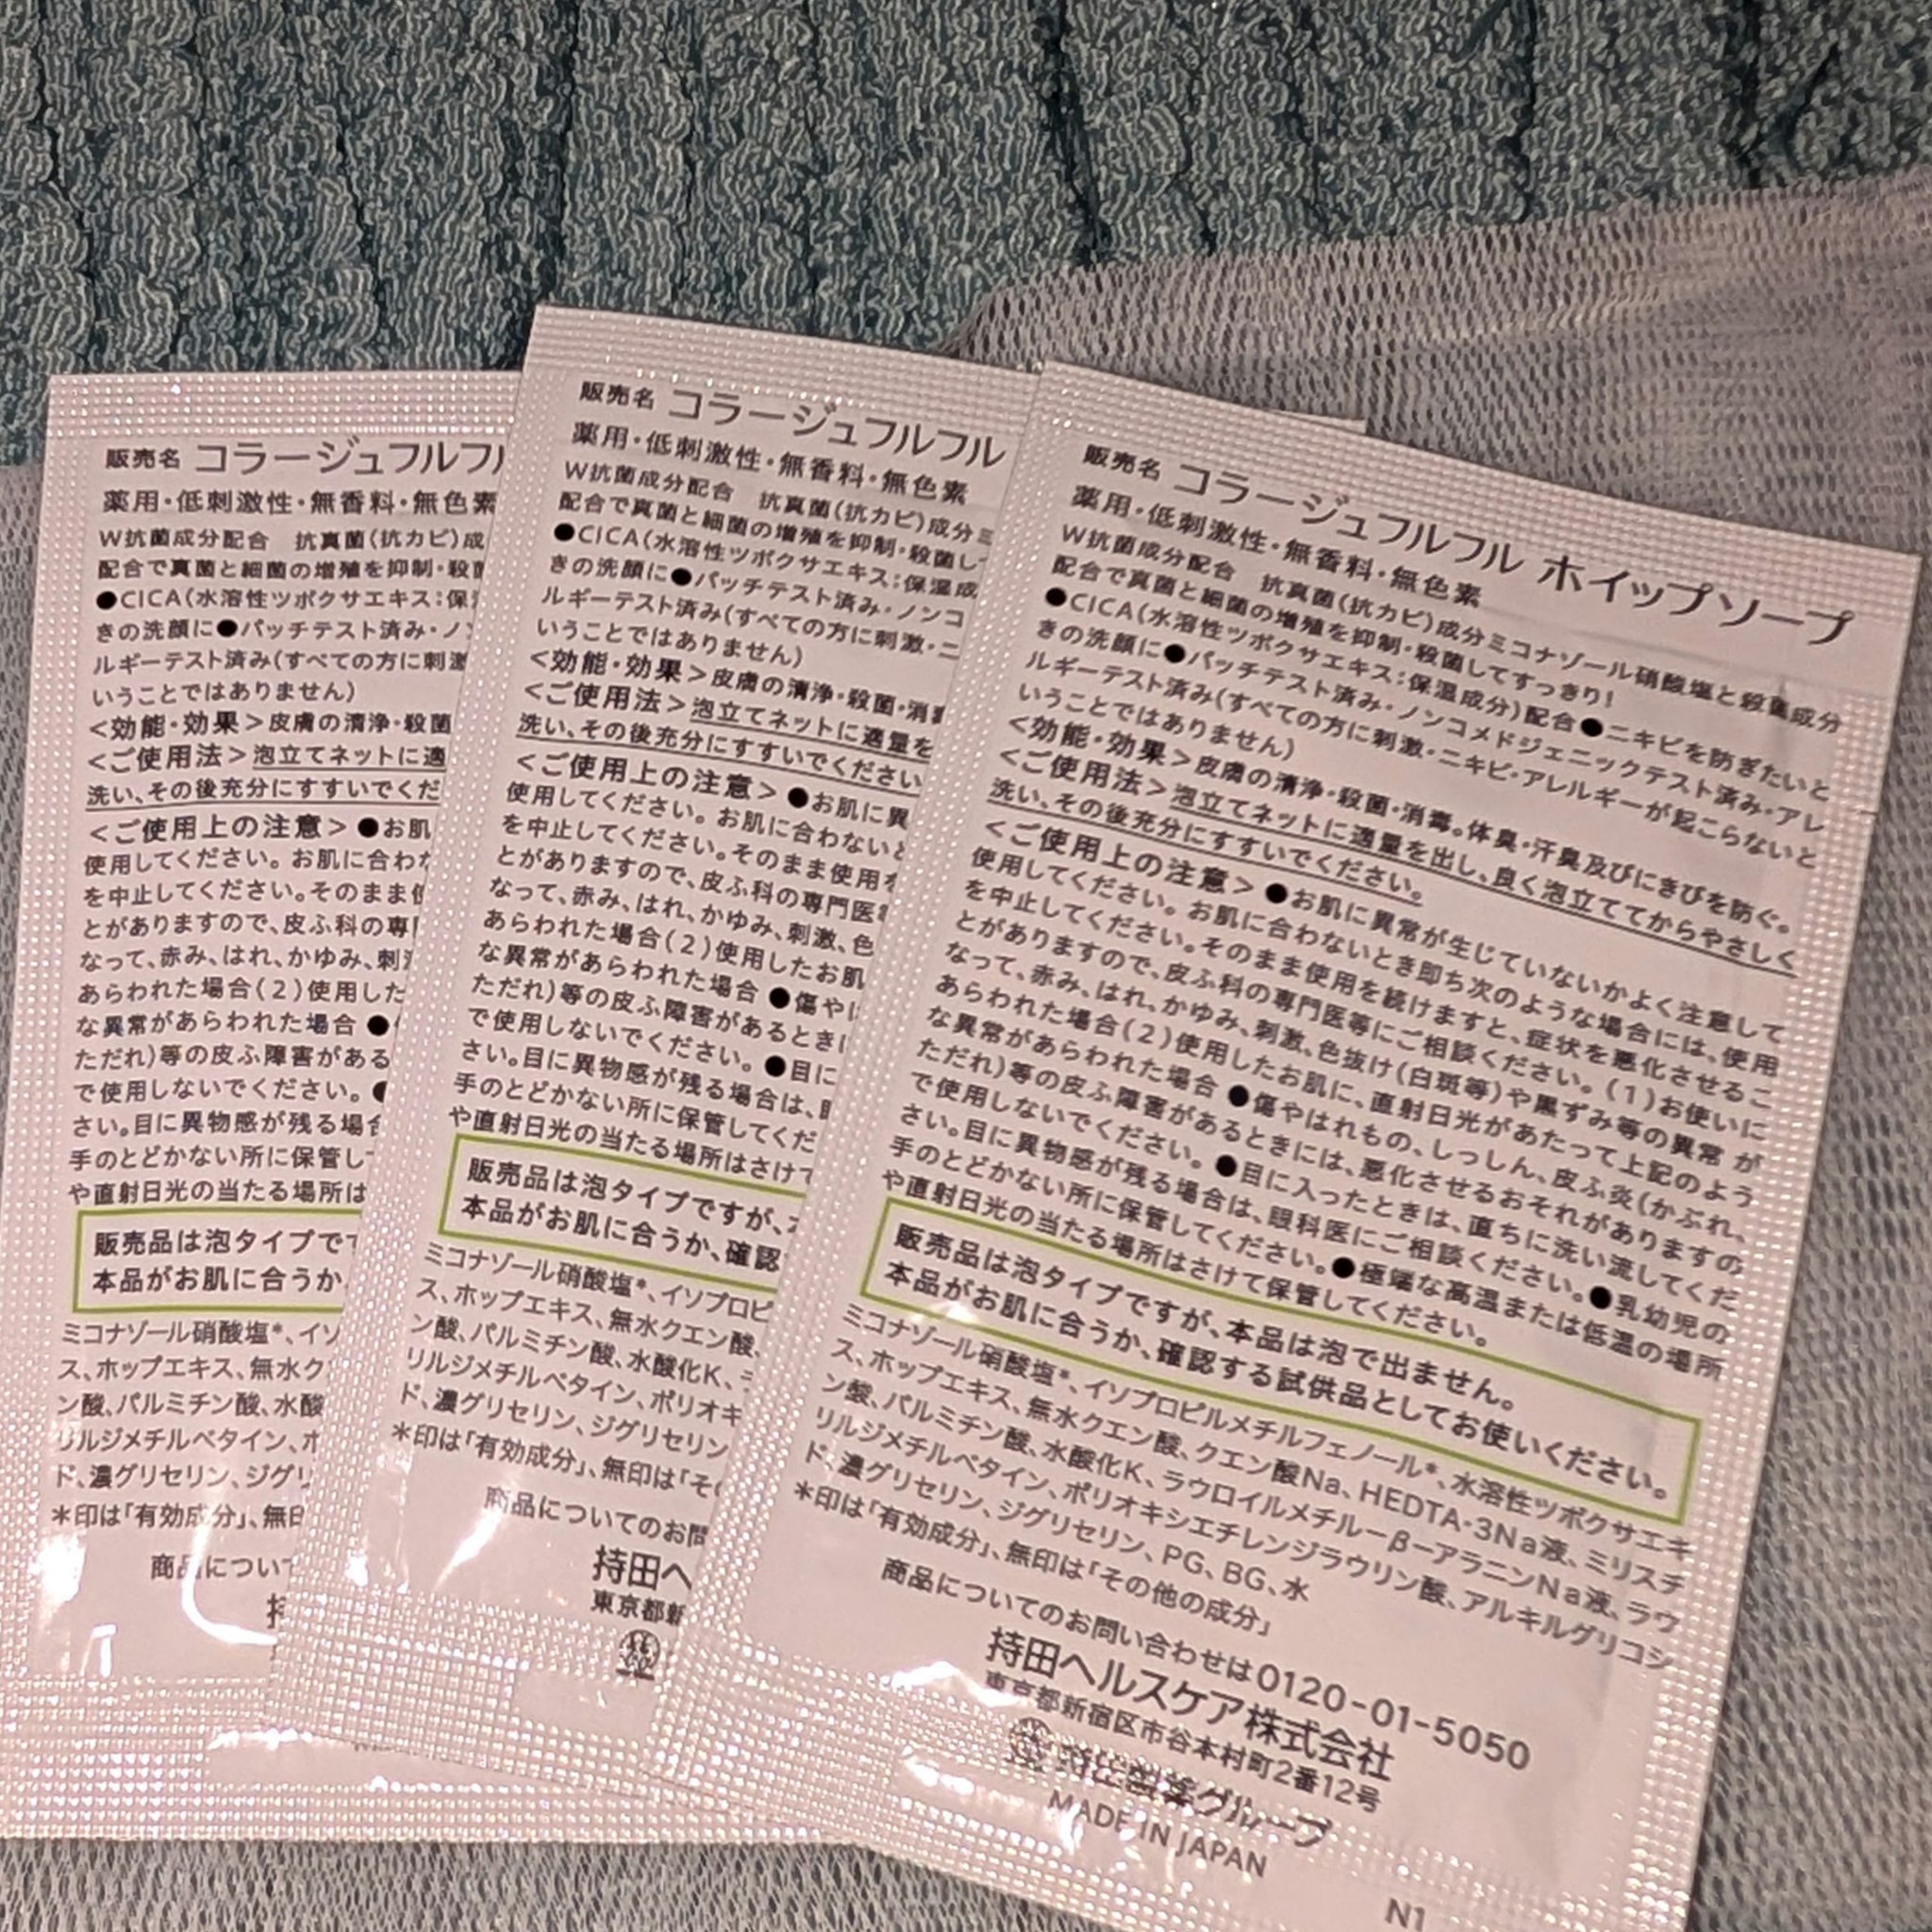 販売名 コラージュフルフル
薬用・低刺激性・無香料・無色素
W抗菌成分配合 抗真菌(抗カビ)成
配合で真菌と細菌の増殖を抑制・殺菌
●CICA(水溶性ツボクサエキス:保
きの洗顔に●パッチテスト済み・ノン
ルギーテスト済み(すべての方に刺激
いうことではありません)
<効能・効果>皮膚の清浄・殺菌
<ご使用法>泡立てネットに適
洗い、その後充分にすすいでくだ
<ご使用上の注意>●お肌
使用してください。お肌に合わな
を中止してください。そのまま使
とがありますので、皮ふ科の専
なって、赤み、はれ、かゆみ、刺
あらわれた場合(2)使用した
な異常があらわれた場合●
ただれ)等の皮ふ障害がある
で使用しないでください。●
さい。目に異物感が残る場合
手のとどかない所に保管し
や直射日光の当たる場所は
販売品は泡タイプで
本品がお肌に合うか、
ミコナゾール硝酸塩*、イソ
ス、ホップエキス、無水ク
ン酸、パルミチン酸、水酸
リルジメチルベタイン、ポ
ド、濃グリセリン、ジグリ
*印は「有効成分」、無印
商品について
持
販売名 コラージュフルフル
薬用・低刺激性・無香料・無色素
W抗菌成分配合 抗真菌(抗カビ)成分ミ
配合で真菌と細菌の増殖を抑制・殺菌し
●CICA(水溶性ツボクサエキス:保湿成
きの洗顔に●パッチテスト済み・ノンコ
ルギーテスト済み(すべての方に刺激・ニ
いうことではありません)
<効能・効果>皮膚の清浄・殺菌・消毒
<ご使用法>泡立てネットに適量を
洗い、その後充分にすすいでください
<ご使用上の注意>●お肌に異
使用してください。お肌に合わないと
を中止してください。そのまま使用を
とがありますので、皮ふ科の専門医
なって、赤み、はれ、かゆみ、刺激、色
あらわれた場合(2)使用したお肌
な異常があらわれた場合●傷や
ただれ)等の皮ふ障害があるときに
で使用しないでください。●目に
さい。目に異物感が残る場合は、
手のとどかない所に保管してくだ
や直射日光の当たる場所はさけて
販売品は泡タイプですが、
本品がお肌に合うか、確認
ミコナゾール硝酸塩*、イソプロピ
ス、ホップエキス、無水クエン酸、
ン酸、パルミチン酸、水酸化K、
リルジメチルベタイン、ポリオキ
ド、濃グリセリン、ジグリセリン
*印は「有効成分」、無印は「そ
商品についてのお問
持田ヘ
東京都新
販売名 コラージュフルフル ホイップソープ
薬用・低刺激性・無香料・無色素
W抗菌成分配合 抗真菌(抗カビ)成分ミコナゾール硝酸塩と殺菌成分
配合で真菌と細菌の増殖を抑制・殺菌してすっきり!
●CICA(水溶性ツボクサエキス:保湿成分)配合●ニキビを防ぎたいと
きの洗顔に●パッチテスト済み・ノンコメドジェニックテスト済み・アレ
ルギーテスト済み(すべての方に刺激・ニキビ・アレルギーが起こらないと
いうことではありません)
<効能・効果>皮膚の清浄・殺菌・消毒。体臭・汗臭及びにきびを防ぐ。
<ご使用法>泡立てネットに適量を出し、良く泡立ててからやさしく
洗い、その後充分にすすいでください。
<ご使用上の注意>●お肌に異常が生じていないかよく注意して
使用してください。お肌に合わないとき即ち次のような場合には、使用
を中止してください。そのまま使用を続けますと、症状を悪化させるこ
とがありますので、皮ふ科の専門医等にご相談ください。(1)お使いに
なって、赤み、はれ、かゆみ、刺激、色抜け(白斑等)や黒ずみ等の異常が
あらわれた場合(2)使用したお肌に、直射日光があたって上記のよう
な異常があらわれた場合●傷やはれもの、しっしん、皮ふ炎(かぶれ、
ただれ)等の皮ふ障害があるときには、悪化させるおそれがありますの
で使用しないでください。●目に入ったときは、直ちに洗い流してくだ
さい。目に異物感が残る場合は、眼科医にご相談ください。●乳幼児の
手のとどかない所に保管してください。●極端な高温または低温の場所
や直射日光の当たる場所はさけて保管してください。
販売品は泡タイプですが、本品は泡で出ません。
本品がお肌に合うか、確認する試供品としてお使いください。
ミコナゾール硝酸塩*、イソプロピルメチルフェノール*、水溶性ツボクサエキ
ス、ホップエキス、無水クエン酸、クエン酸Na、HEDTA・3Na液、ミリスチ
ン酸、パルミチン酸、水酸化K、ラウロイルメチル-β-アラニンNa液、ラウ
リルジメチルベタイン、ポリオキシエチレンジラウリン酸、アルキルグリコシ
ド、濃グリセリン、ジグリセリン、PG、BG、水
*印は「有効成分」、無印は「その他の成分」
商品についてのお問い合わせは0120-01-5050
持田ヘルスケア株式会社
東京都新宿区市谷本村町2番12号
持田製薬グループ
MADE IN JAPAN
N1